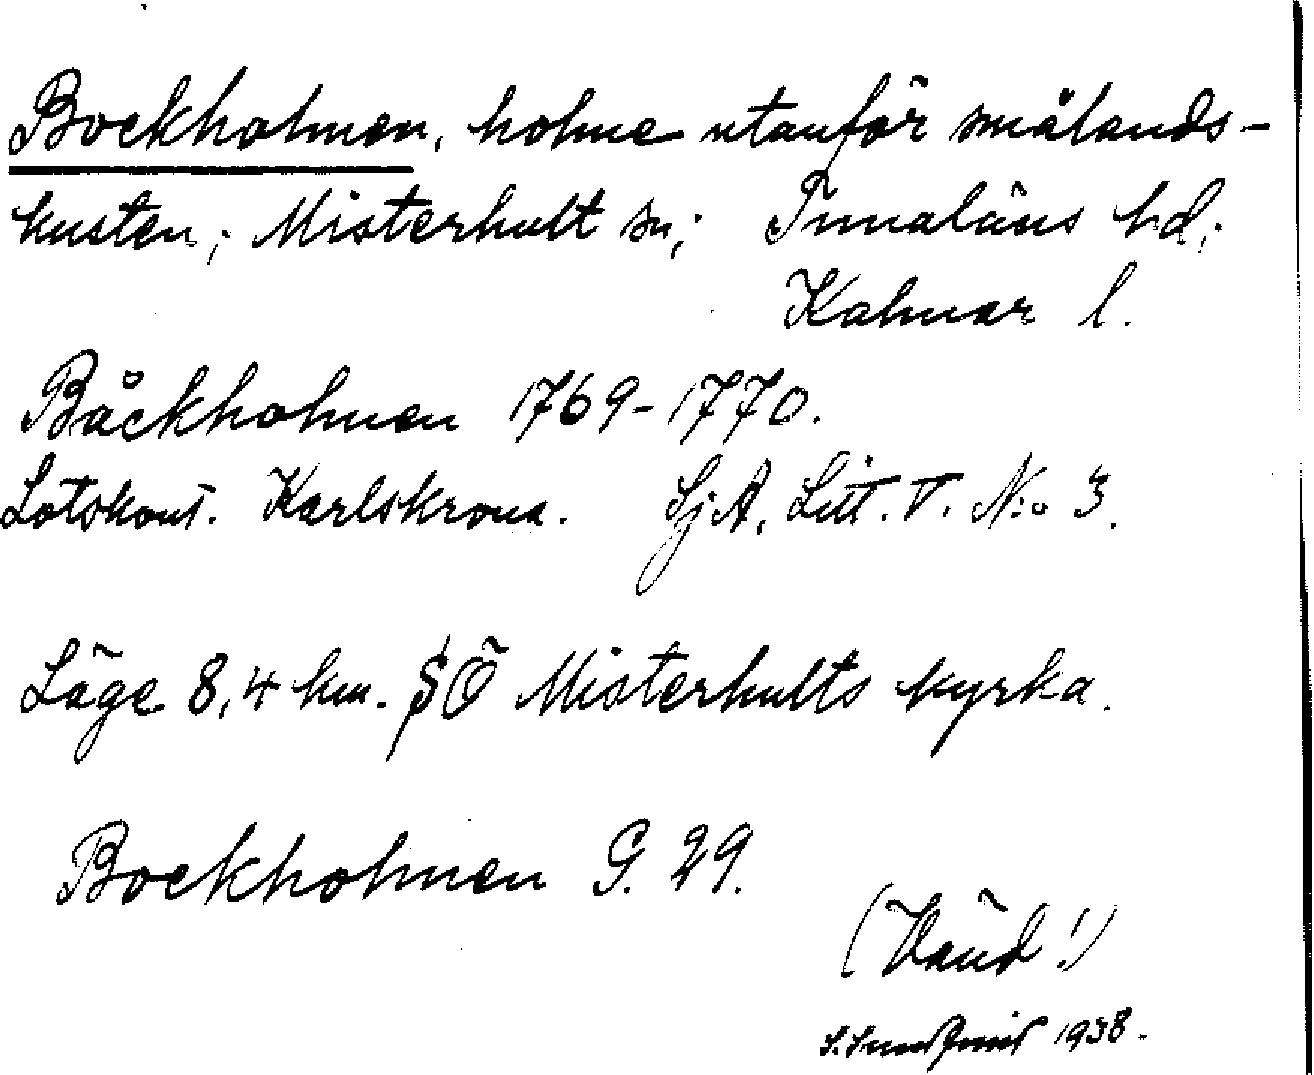 Bockholmen, holme utanför smålands-
kusten; Misterhult sn; Tunaläns hd;
Kalmar l.
Båckholmen 1769-1770.
Lotskont. Karlskrona. SjA, Litt. V. N:o 3.
Läge 8,4 km. SÖ Misterhults kyrka.
Bockholmen G. 29.
(Vänd!)
1938.